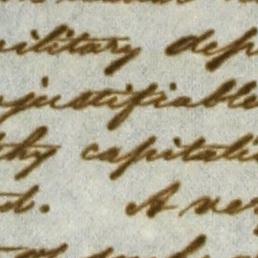 military dep
njustifiable
thy capitali
d. A ver